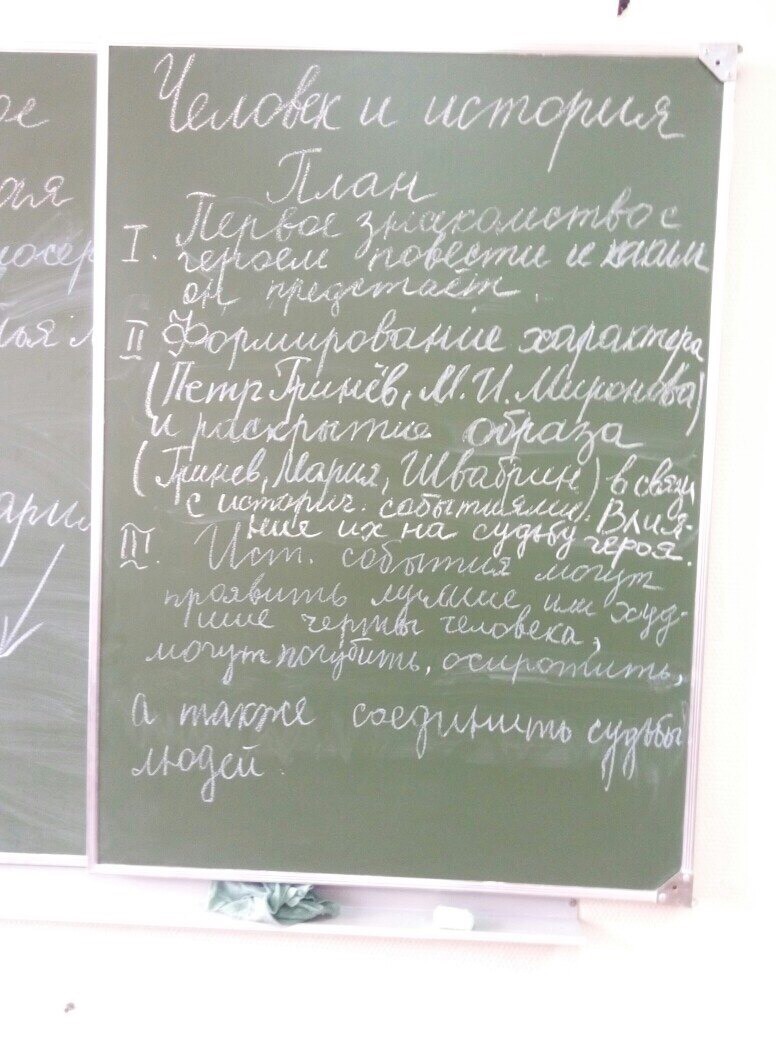 Человек и история
План
I. Первое знакомство с
героем повести и каким
он предстаёт.
II Формирование характера
(Петр Гринёв, М. И. Миронова)
и раскрытие образа
(Гринев, Мария, Швабрин) в связи
с историч. событиями. Влия-
ние их на судьбу героя.
III. Ист. события могут
проявить лучшие или худ-
шие черты человека,
могут погубить, осиротить,
а также соединить судьбы
людей